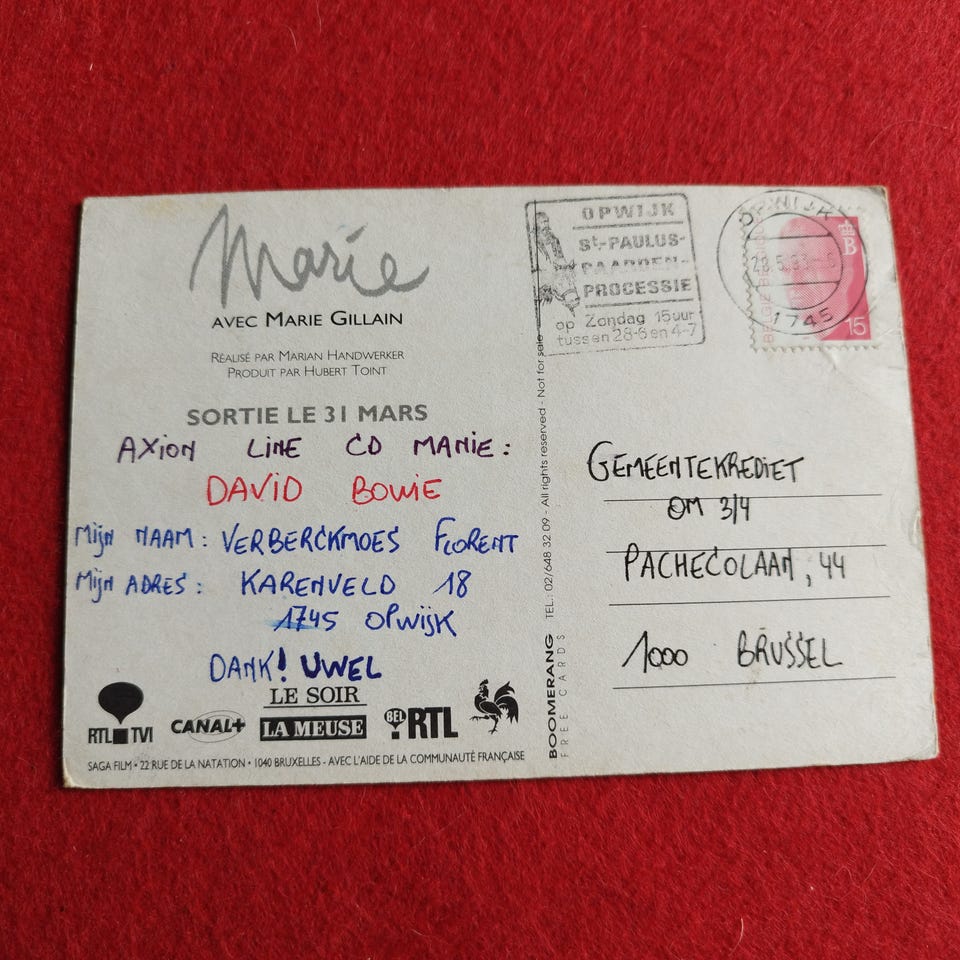 Marie
AVEC MARIE GILLAIN
RÉALISÉ PAR MARIAN HANDWERKER
PRODUIT PAR HUBERT TOINT
SORTIE LE 31 MARS
AXION LINE CD MANIE:
DAVID BOWIE
MIJN NAAM: VERBERCKMOES FLORENT
MIJN ADRES: KARENVELD 18
1745 OPWIJK
DANK! UWEL
RTL TVI
CANAL+
LE SOIR
LA MEUSE
BEL RTL
SAGA FILM • 22 RUE DE LA NATATION • 1040 BRUXELLES - AVEC L'AIDE DE LA COMMUNAUTÉ FRANÇAISE
BOOMERANG
FREE CARDS
TEL.: 02/648 32 09 - All rights reserved - Not for sale
OPWIJK
St-PAULUS-
PAARDEN-
PROCESSIE
op Zondag 15uur
tussen 28-6 en 4-7
OPWIJK
1745
BELGIE
B
15
GEMEENTEKREDIET
OM 3/4
PACHECOLAAN, 44
1000 BRUSSEL